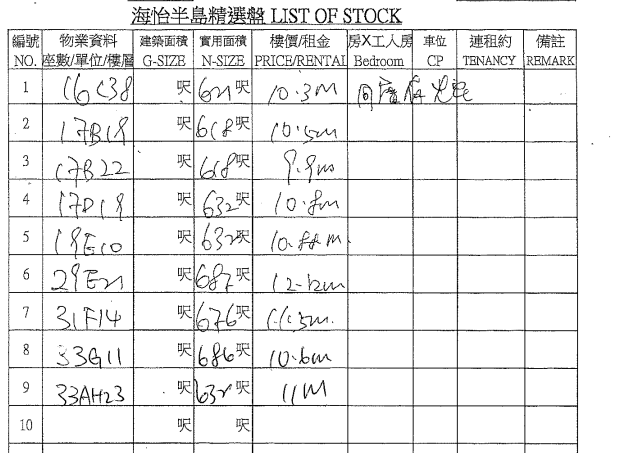 海怡半島精選盤 LIST OF STOCK
編號 物業資料 建築面積 實用面積 樓價/租金 房X工人房 車位 連租約 備註
NO. 座數/單位/樓層 G-SIZE N-SIZE PRICE/RENTAL Bedroom CP TENANCY REMARK
1 16C38 呎 621呎 10.3M
2 17B19 呎 618呎 10.5m
3 17B22 呎 618呎 9.9m
4 17D19 呎 632呎 10.8m
5 19E10 呎 632呎 10.88M.
6 29E21 呎 687呎
7 31F14 呎 676呎
8 33G11 呎 686呎 10.6m
9 33AH23 呎 632呎 11M
10 呎 呎